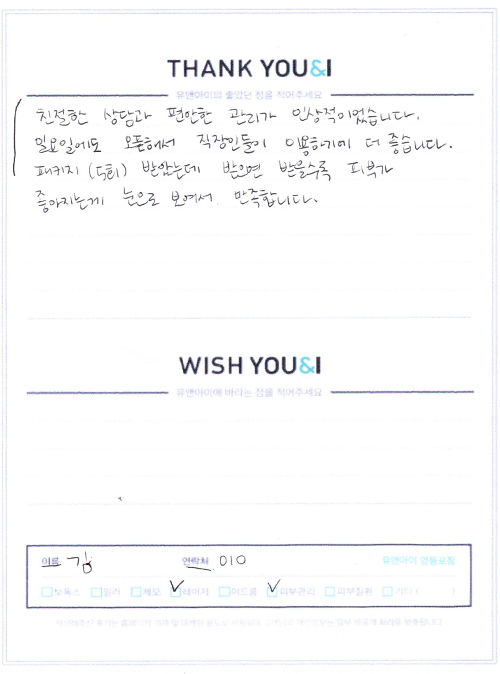 THANK YOU&I
유앤아이의 좋았던 점을 적어주세요
친절한 상담과 편안한 관리가 인상적이었습니다.
일요일에도 오픈해서 직장인들이 이용하기에 더 좋습니다.
패키지 (5회) 받았는데 받으면 받을수록 피부가
좋아지는게 눈으로 보여서 만족합니다.
WISH YOU&I
유앤아이에 바라는 점을 적어주세요
이름 김 연락처 010 유앤아이 영등포점
보톡스 필러 제모 레이저 여드름 피부관리 피부질환 기타 ( )